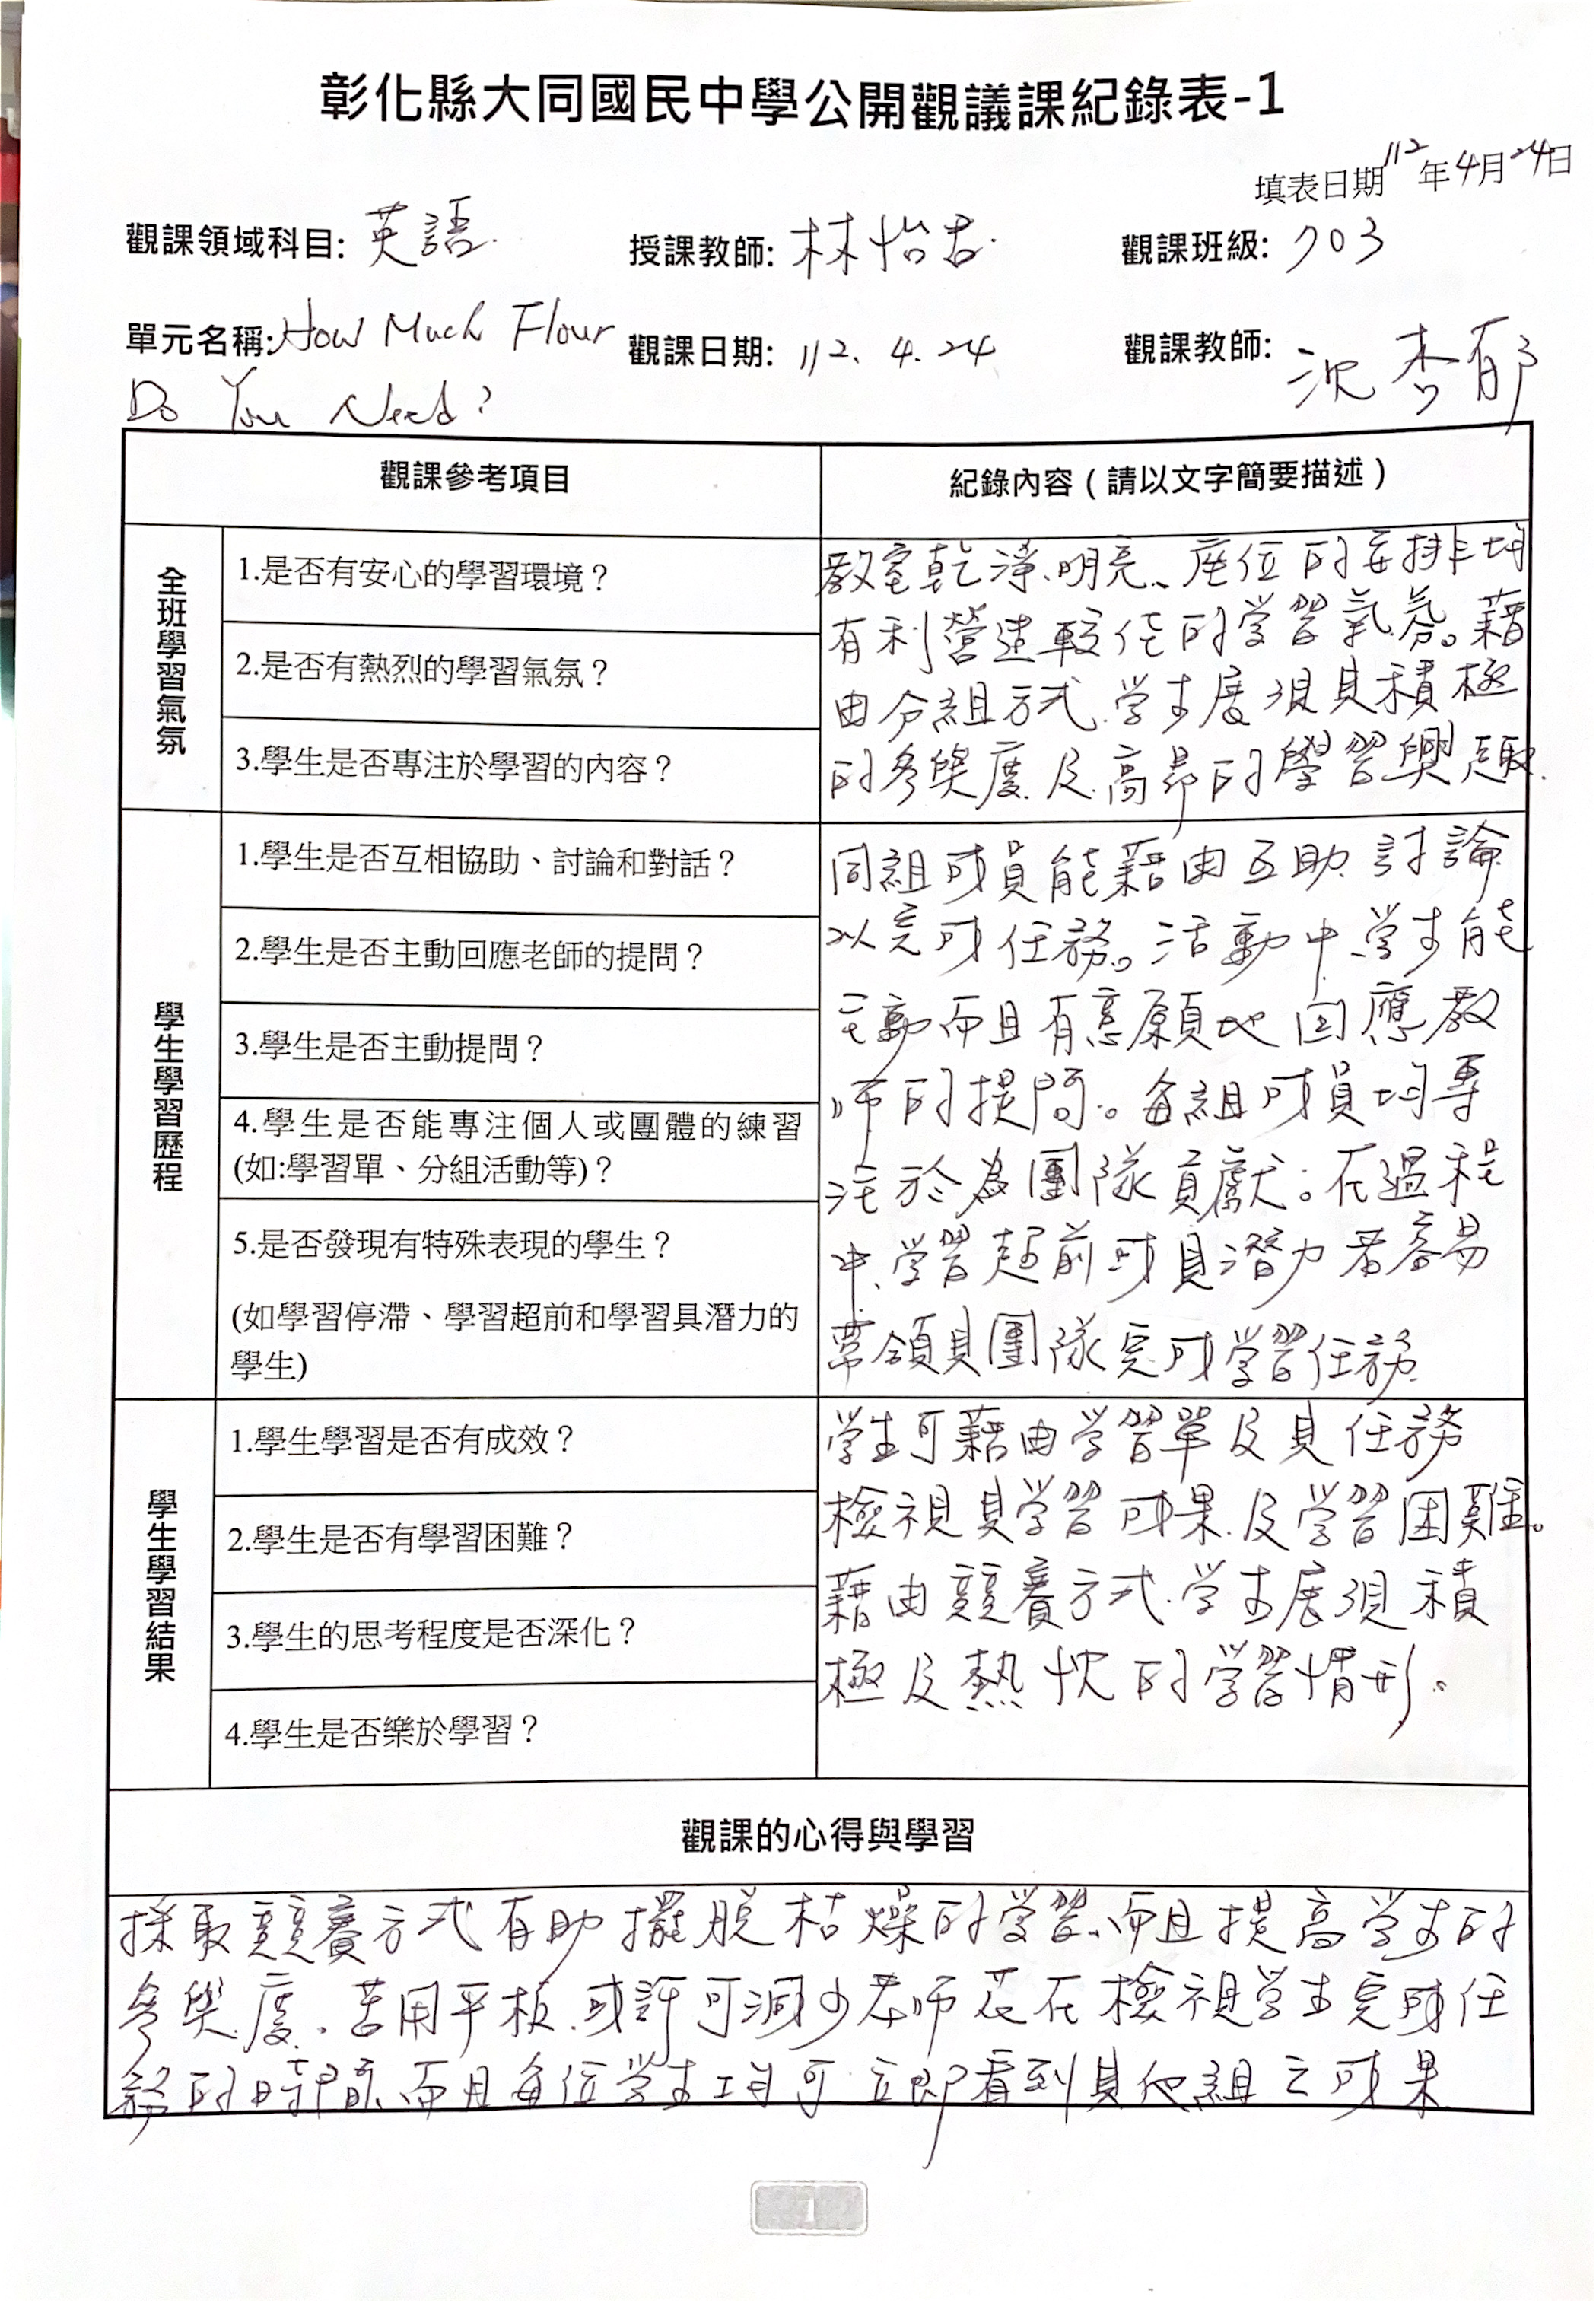 彰化縣大同國民中學公開觀議課紀錄表-1
填表日期112年4月24日
觀課領域科目:英語
授課教師:林怡君
觀課班級:703
單元名稱:How Much Flour
Do You Need?
觀課日期:112.4.24
觀課教師:沈杏郁
觀課參考項目
紀錄內容(請以文字簡要描述)
全班學習氣氛
1.是否有安心的學習環境?
2.是否有熱烈的學習氣氛?
3.學生是否專注於學習的內容?
教室乾淨、明亮、座位的安排均
有利營造較佳的学習氣氛。藉
由分組方式,学生展現其積極
的參與度及高昂的學習興趣.
學生學習歷程
1.學生是否互相協助、討論和對話?
2.學生是否主動回應老師的提問?
3.學生是否主動提問?
4.學生是否能專注個人或團體的練習
(如:學習單、分組活動等)?
5.是否發現有特殊表現的學生?
(如學習停滯、學習超前和學習具潛力的
學生)
同組成員能藉由互助、討論
以完成任務。活動中,学生能
主動而且有意願地回應教
師的提問。每組成員均專
注於為團隊貢獻。在過程
中,学習超前或具潛力者容易
帶領其團隊完成学習任務.
學生學習結果
1.學生學習是否有成效?
2.學生是否有學習困難?
3.學生的思考程度是否深化?
4.學生是否樂於學習?
学生可藉由学習單及其任務
檢視其学習成果及学習困難。
藉由競賽方式,学生展現積
極及熱忱的学習情形。
觀課的心得與學習
採取競賽方式有助擺脫枯燥的学習,而且提高学生的
參與度。若用平板,或許可減少老師花在檢視学生完成任
務的時間,而且每位学生均可立即看到其他組之成果
1